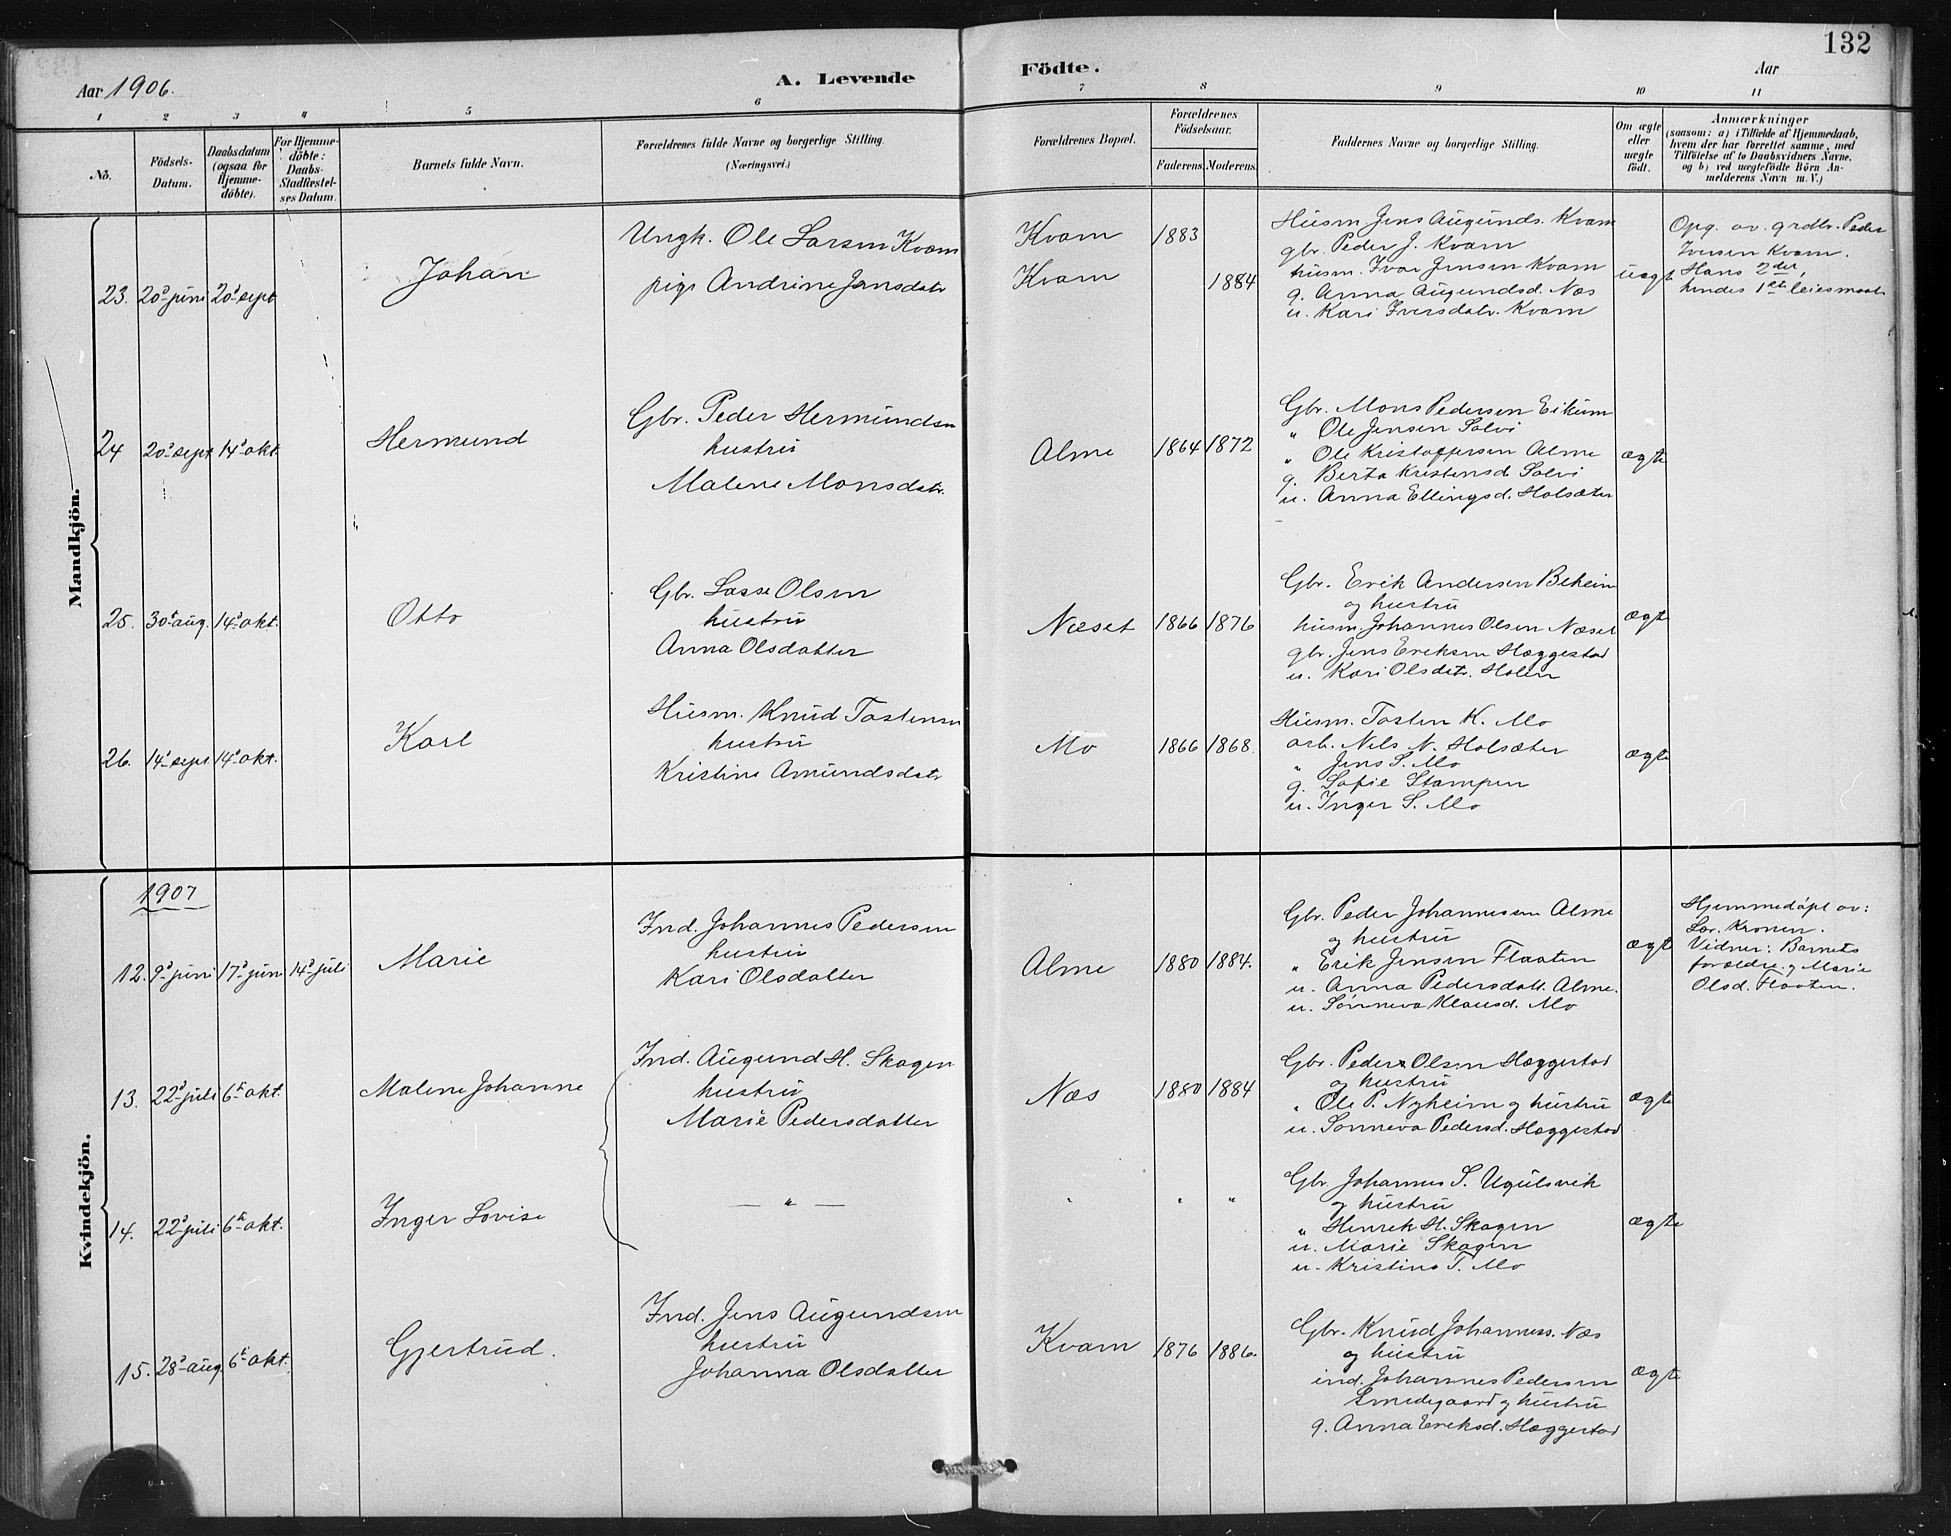 132
Aar 1906.
A. Levende Födte.
Aar
1 2 3 4 5 6 7 8 9 10 11
No.
Födsels-
Datum.
Daabsdatum
(ogsaa for
Hjemme-
döbte).
For Hjemme-
döbte:
Daabs-
Stadfæstel-
ses Datum.
Barnets fulde Navn.
Forældrenes fulde Navne og borgerlige Stilling.
(Næringsvei.)
Forældrenes Bopæl.
Forældrenes
Födselsaar.
Faderens. Moderens.
Faddernes Navne og borgerlige Stilling.
Om ægte
eller
uægte
födt.
Anmærkninger
(saasom: a) i Tilfælde af Hjemmedaab,
hvem der har forrettet samme, med
Tilföielse af to Daabsvidners Navne.
og b) ved uægtefödte Börn An-
melderens Navn m. V.)
Mandkjön.
23. 20d juni 20d sept
Johan
Ungk. Ole Larsen Kvam
pige Andrine Jensdatr
Kvam 1883
Kvam 1884
Husm Jens Augunds. Kvam
gbr. Peder J. Kvam
husm. Ivar Jensen Kvam
g. Anna Augundsd. Næs
u. Kari Iversdatr. Kvam
uægte
Opg. av. grdbr. Peder
Iversen Kvam.
Hans 2det,
hendes 1ste leiesmaal
24 20d sept 14d okt
Hermund
Gbr. Peder Hermundsen
hustru
Malene Monsdatr.
Alme 1864 1872
Gbr. Mons Pedersen Eikum
" Ole Jensen Solvi
" Ole Kristoffersen Alme
g. Berta Kristensd. Solvi
u. Anna Ellingsd. Holsæter
ægte
25. 30t aug. 14d okt.
Otto
Gbr. Lasse Olsen
hustru
Anna Olsdatter
Næset 1866 1876
Gbr. Erik Andersen Beheim
og hustru
husm. Johannes Olsen Næset
gbr. Jens Eriksen Hæggestad
u. Kari Olsdatr. Holen
ægte
26. 14d sept 14d okt.
Karl
Husm. Knud Tostensen
hustru
Kristine Amundsdatr
Mo 1866 1868.
Husm. Tosten K. Mo
arb. Nils N. Holsæter
" Jens S. Mo
g. Sofie Stampen
u. Inger S. Mo
ægte
Kvindekjön.
1907
12. 9d juni 17d juni 14d juli
Marie
Ind. Johannes Pedersen
hustru
Kari Olsdatter
Alme 1880 1884.
Gbr. Peder Johannessen Alme
og hustru
" Erik Jensen Flaaten
u. Anna Pedersdatt. Alme.
u. Sønneva Klausd. Mo
ægte
Hjemmedøpt av:
Lær. Kronen.
Vidner: Barnets
forældre og Marie
Olsd. Flaaten.
13. 22d juli 6te okt.
Malene Johanne
Ind. Augund H. Skagen
hustru
Marie Pedersdatter
Næs 1880 1884
Gbr. Peder Olsen Hæggestad
og hustru
" Ole P. Nyheim og hustru
u. Sønneva Pedersd. Hæggestad
ægte
14. 22d juli 6te okt.
Inger Lovise
— " —
" " "
Gbr. Johannes S. Ugulsvik
og hustru
" Henrik H. Skagen
u. Marie Skagen
u. Kristine T. Mo
ægte
15. 28d aug 6te okt.
Gjertrud.
Ind. Jens Augundsen
hustru
Johanna Olsdatter
Kvam 1876 1886.
Gbr. Knud Johanness. Næs
og hustru
ind. Johannes Pedersen
Smedegaard og hustru
g. Anna Eriksd. Hæggestad
ægte